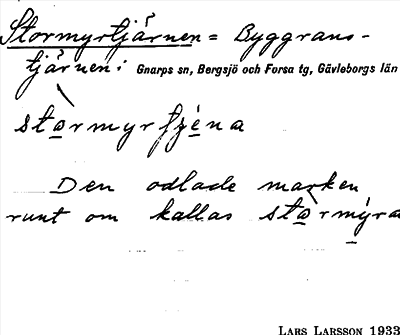 Stormyrtjärnen = Byggrans-
tjärnen i Gnarps sn, Bergsjö och Forsa tg, Gävleborgs län
stormyrfjèna
Den odlade marken
runt om kallas stormýra
LARS LARSSON 1933